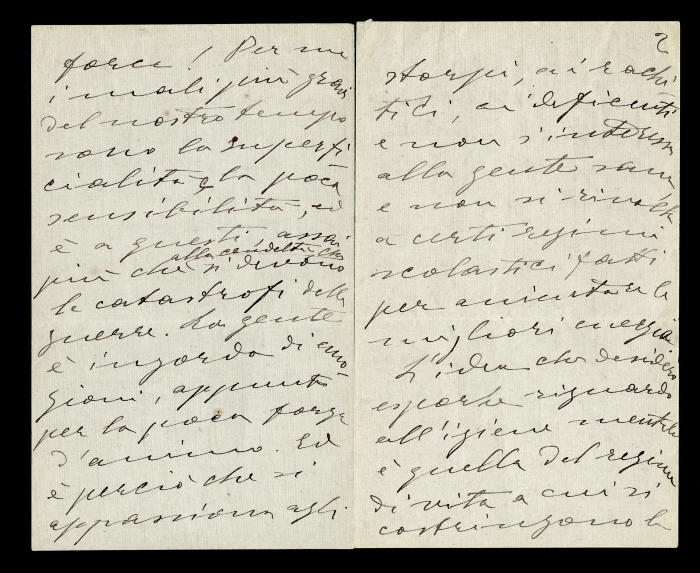 forse! Per me
i mali più gravi
del nostro tempo
sono la superfi
cialità e la poca
sensibilità, ed
è a questi, assai
più che alla crudeltà che
si devono
le catastrofi delle
guerre. La gente
è ingorda di emo
zioni, appunto
per la poca forza
d'animo. Ed
è perciò che si
appassiona agli
2
storpi, ai rachi
tici, ai deficienti
e non s'interessa
alla gente sana,
e non si
a certi regimi
scolastici fatti
per le
migliori energie.
L'idea che desidero
esporle riguardo
all'igiene mentale
è quella del regime
di vita a cui si
costringono le